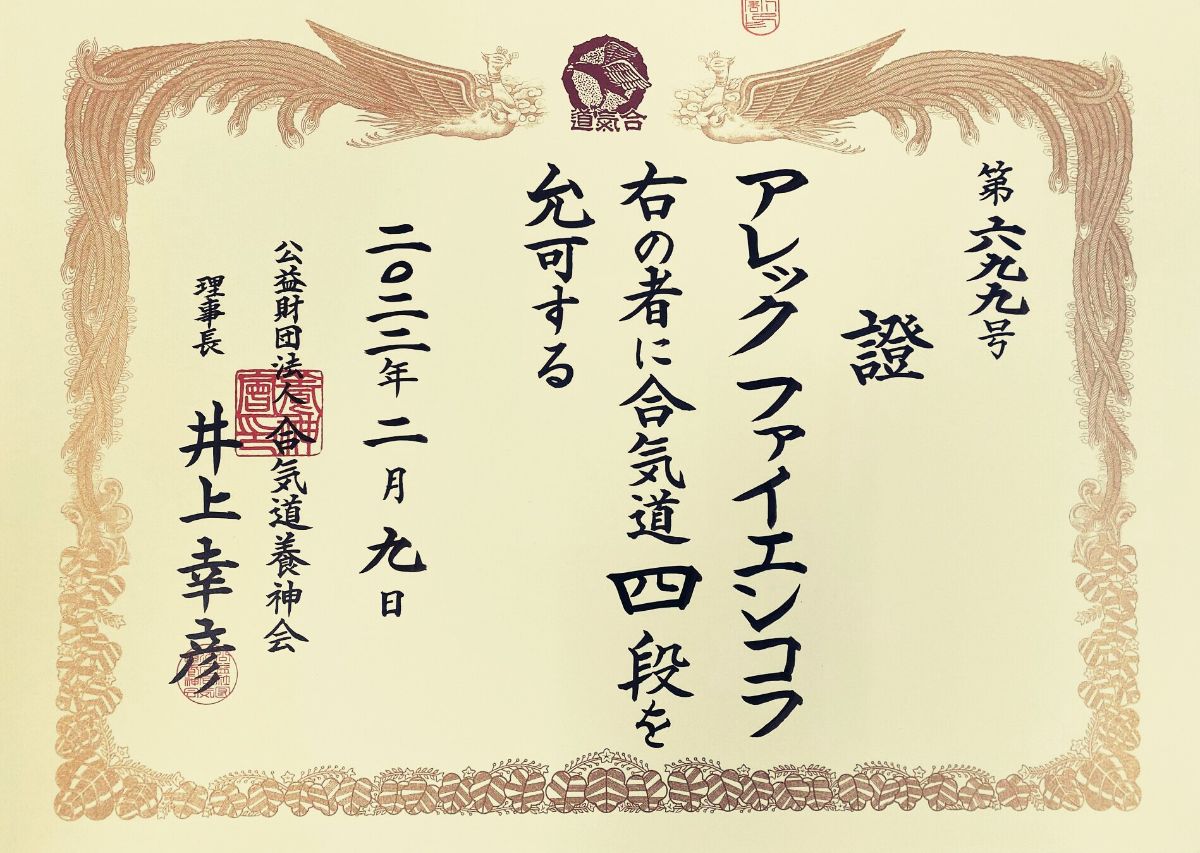 合氣道
第六九九号
證
アレック ファイエンコフ
右の者に合気道四段を
允可する
二〇二二年二月九日
公益財団法人合気道養神会
理事長 井上幸彦